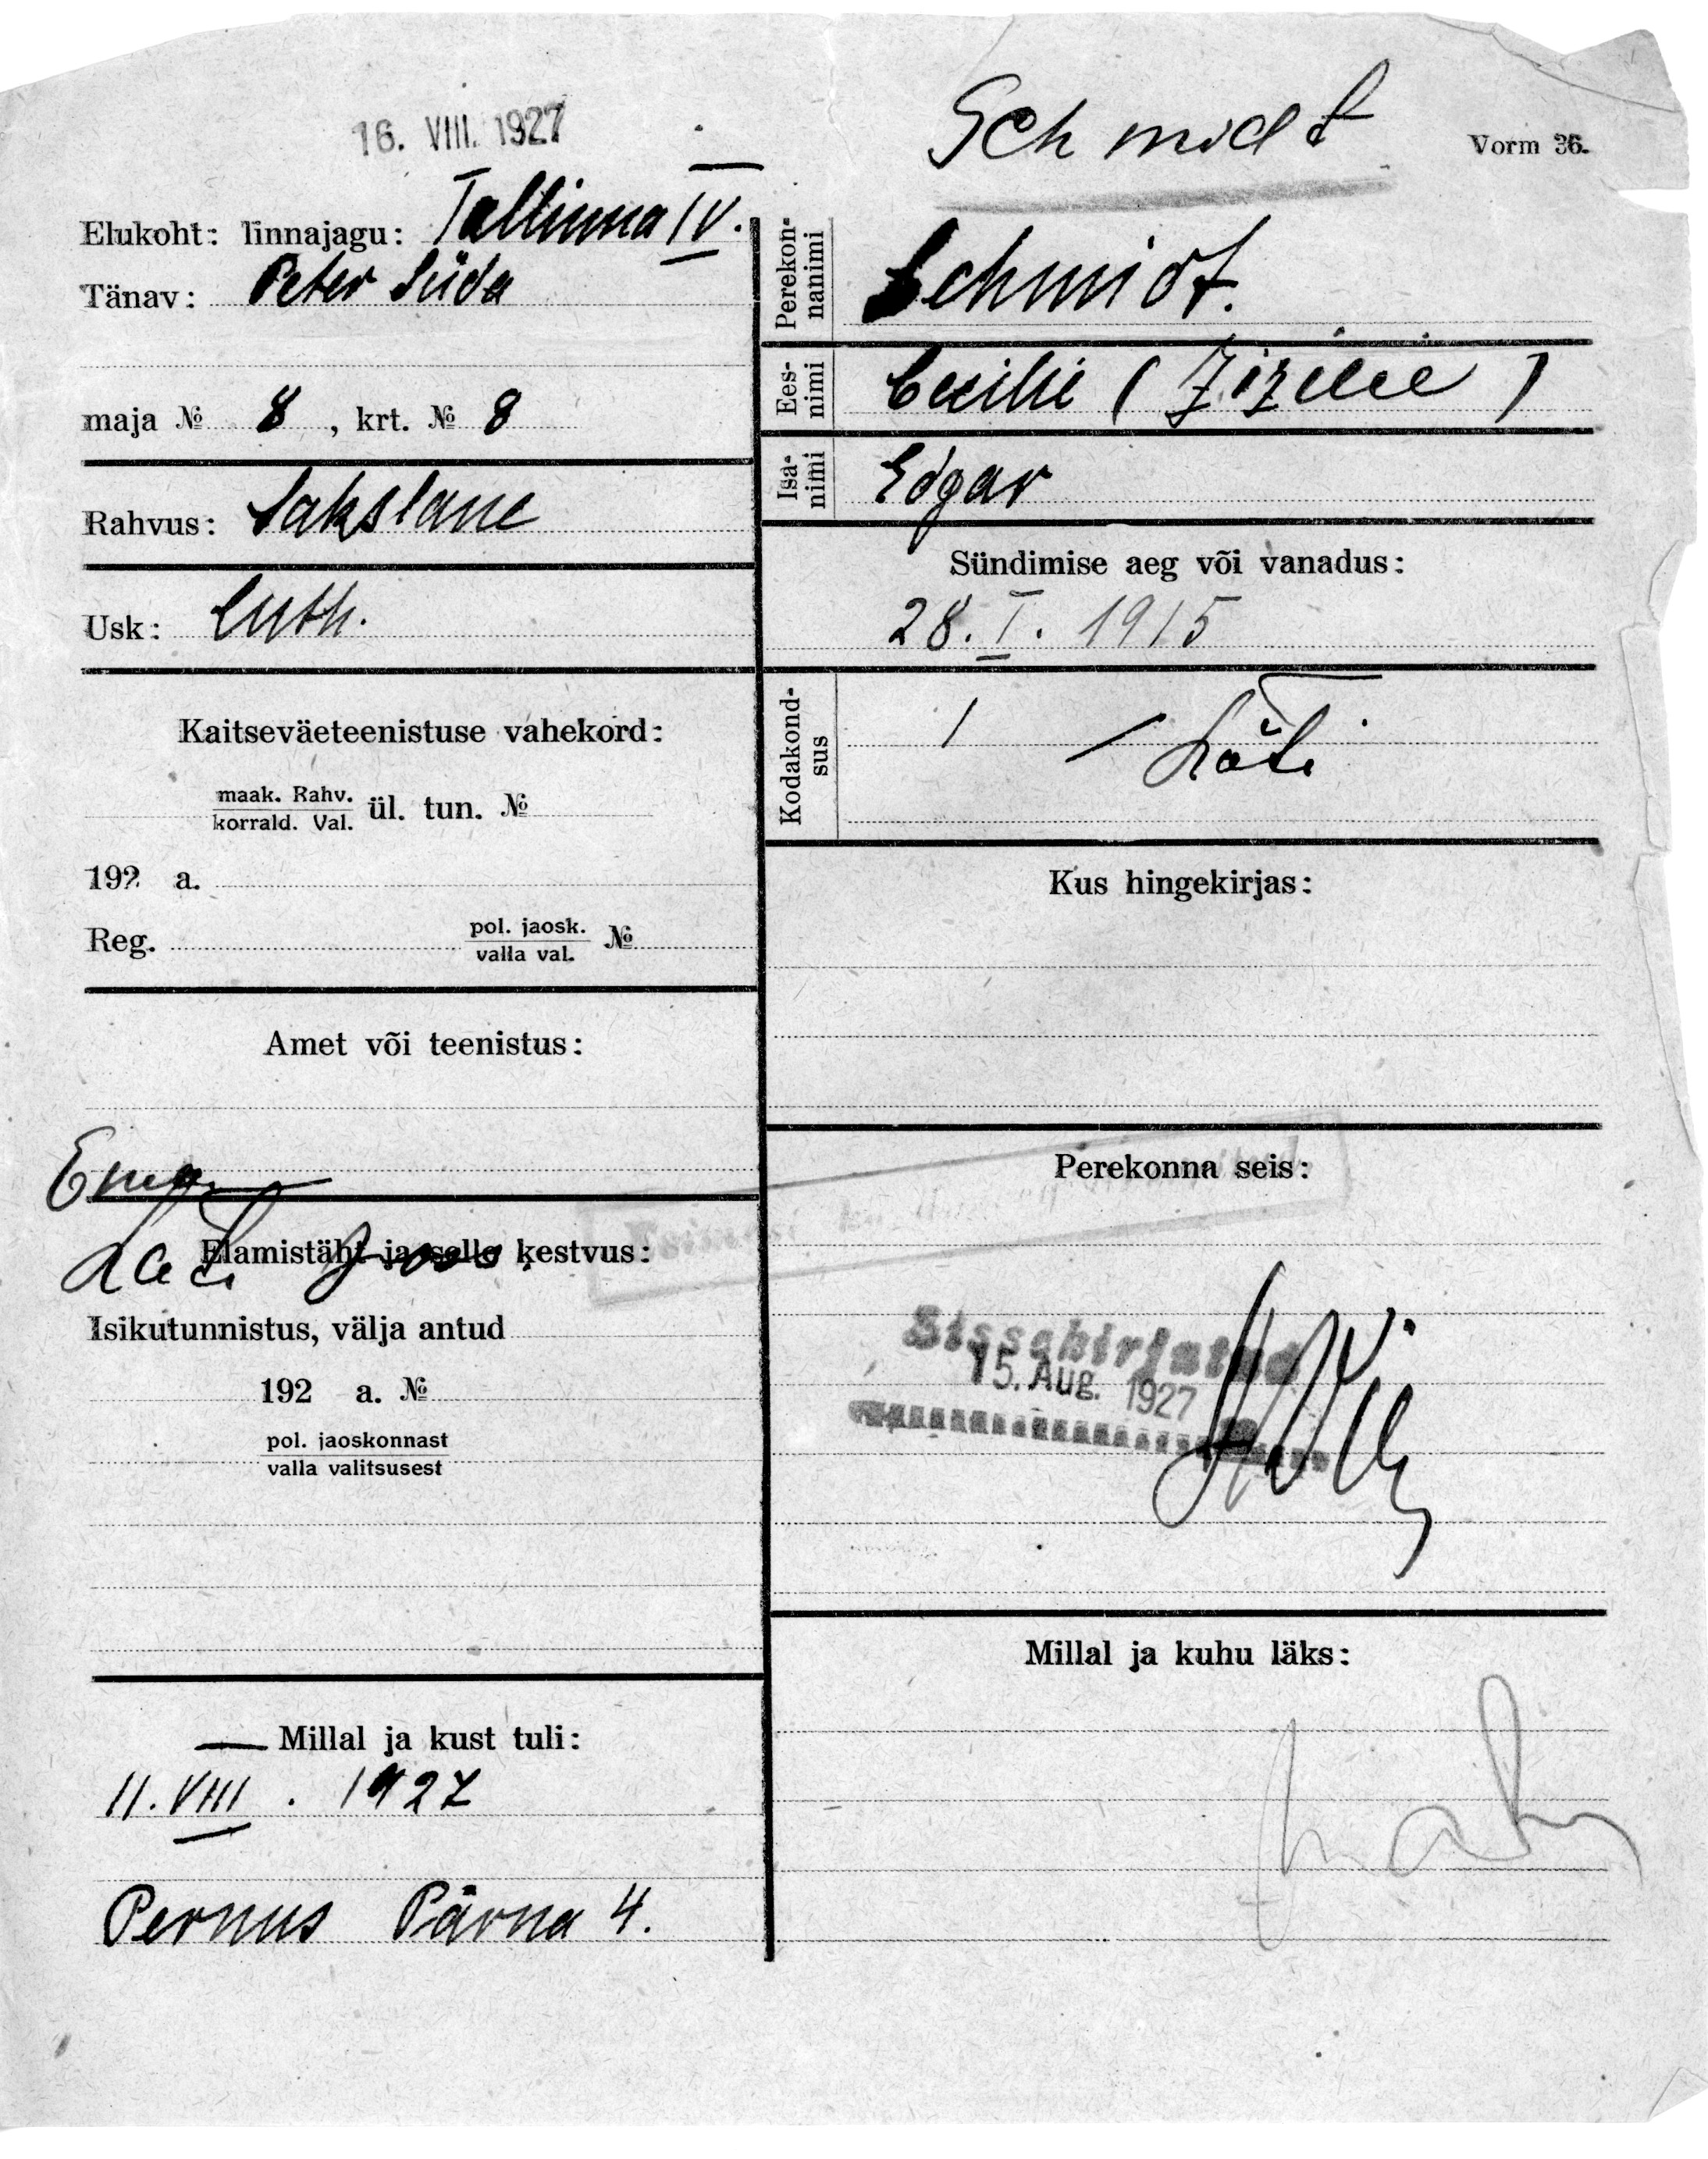 16. VIII. 1927
Schmidt
Vorm 36.
Elukoht: linnajagu: Tallinna IV.
Tänav: Peter Süda
maja № 8, krt. № 8
Rahvus: Sakslane
Usk: Luth.
Kaitseväeteenistuse vahekord:
maak. Rahv.
korrald. Val. ül. tun. №
192 a.
Reg. pol. jaosk. №
valla val.
Amet või teenistus:
Ema
Läti
Elamistäht ja selle kestvus:
Isikutunnistus, välja antud
192 a. №
pol. jaoskonnast
valla valitsusest
Millal ja kust tuli:
11. VIII. 1927
Pernus Pärna 4.
Perekonnanimi
Schmidt.
Eesnimi
Cecilie (Zizilie)
Isanimi
Edgar
Sündimise aeg või vanadus:
28. I. 1915
Kodakondsus
/ / Läti
Kus hingekirjas:
Perekonna seis:
Sissekirjutatud
15. Aug. 1927
Millal ja kuhu läks: